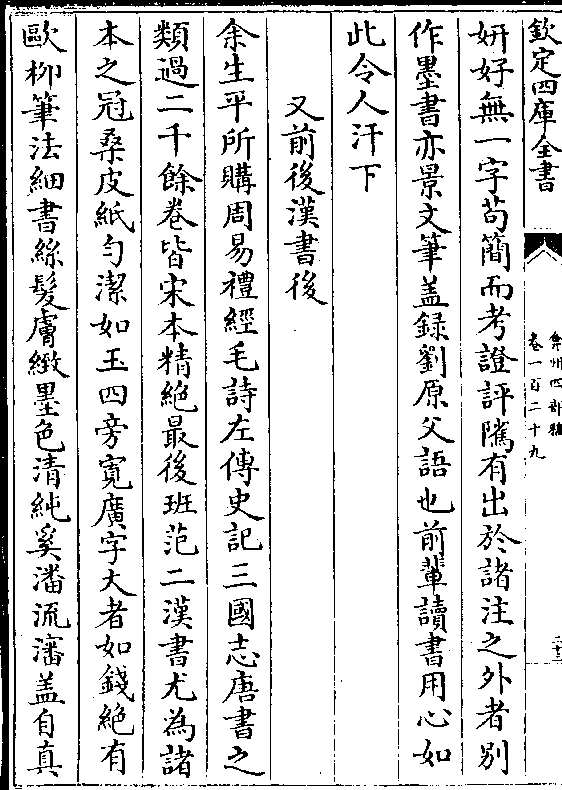 欽定四庫全書
弇州四部稿
卷一百二十九
姸好無一字苟簡而考證評隲有出於諸注之外者别
作墨書亦景文筆盖録劉原父語也前輩讀書用心如
此令人汗下
又前後漢書後
余生平所購周易禮經毛詩左傳史記三國志唐書之
類過二千餘卷皆宋本精絶最後班范二漢書尤為諸
本之冠桑皮紙勻潔如玉四旁寛廣字大者如錢絶有
歐柳筆法細書絲髮膚緻墨色清純奚潘流瀋盖自真